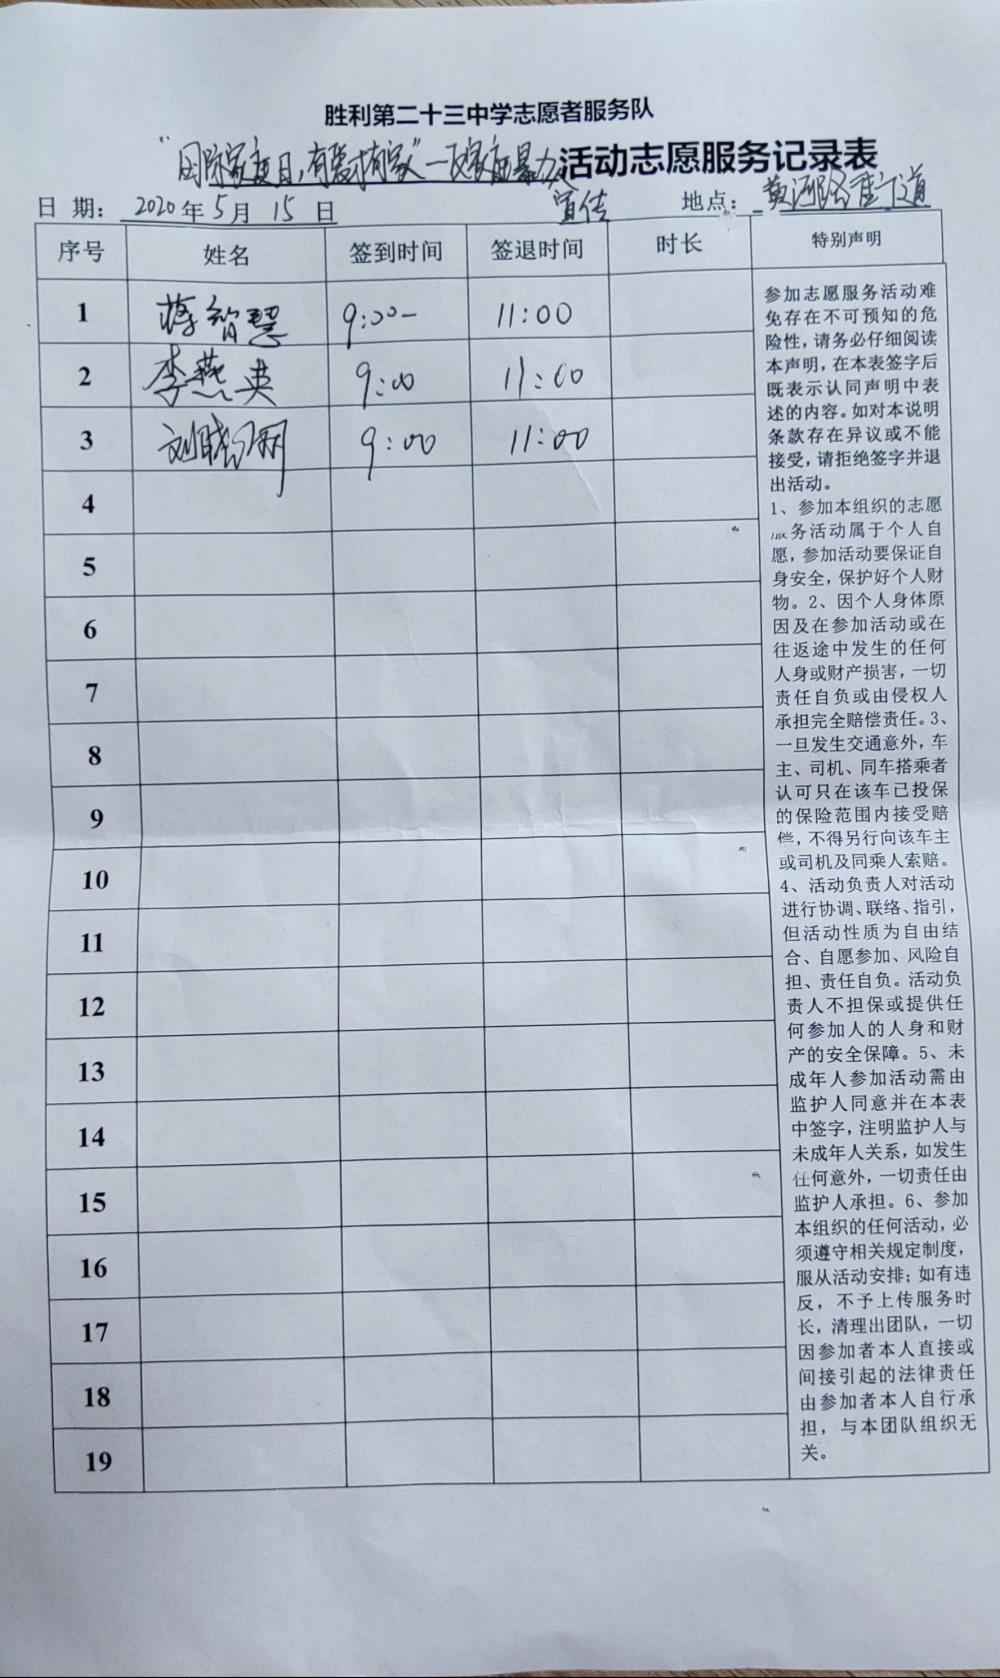 胜利第二十三中学志愿者服务队
“国际家庭日，有爱才有家”—反家庭暴力 活动志愿服务记录表
宣传
日 期： 2020年 5月 15 日 地点： 黄河路街道
序号 姓名 签到时间 签退时间 时长 特别声明
1 蒋智慧 9:00 11:00
2 李燕英 9:00 11:00
3 刘晓 9:00 11:00
4
5
6
7
8
9
10
11
12
13
14
15
16
17
18
19
参加志愿服务活动难
免存在不可预知的危
险性，请务必仔细阅读
本声明，在本表签字后
既表示认同声明中表
述的内容。如对本说明
条款存在异议或不能
接受，请拒绝签字并退
出活动。
1、参加本组织的志愿
服务活动属于个人自
愿，参加活动要保证自
身安全，保护好个人财
物。2、因个人身体原
因及在参加活动或在
往返途中发生的任何
人身或财产损害，一切
责任自负或由侵权人
承担完全赔偿责任。3、
一旦发生交通意外，车
主、司机、同车搭乘者
认可只在该车已投保
的保险范围内接受赔
偿，不得另行向该车主
或司机及同乘人索赔。
4、活动负责人对活动
进行协调、联络、指引，
但活动性质为自由结
合、自愿参加、风险自
担、责任自负。活动负
责人不担保或提供任
何参加人的人身和财
产的安全保障。5、未
成年人参加活动需由
监护人同意并在本表
中签字，注明监护人与
未成年人关系，如发生
任何意外，一切责任由
监护人承担。6、参加
本组织的任何活动，必
须遵守相关规定制度，
服从活动安排；如有违
反，不予上传服务时
长，清理出团队，一切
因参加者本人直接或
间接引起的法律责任
由参加者本人自行承
担，与本团队组织无
关。